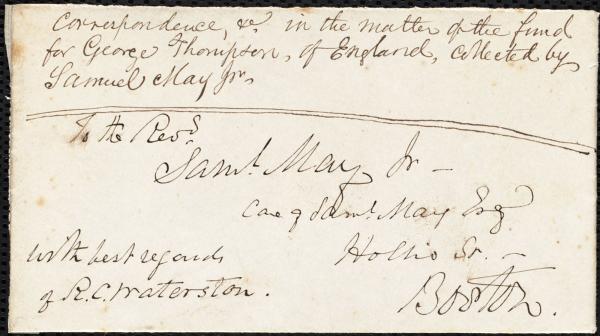 Correspondence, &c. in the matter of the fund
for George Thompson, of England, collected by
Samuel May Jr.
To the Revd.
Saml. May Jr –
Care of Saml. May Esq
Hollis St. –
Boston.
with best regards
of R.C. Waterston.